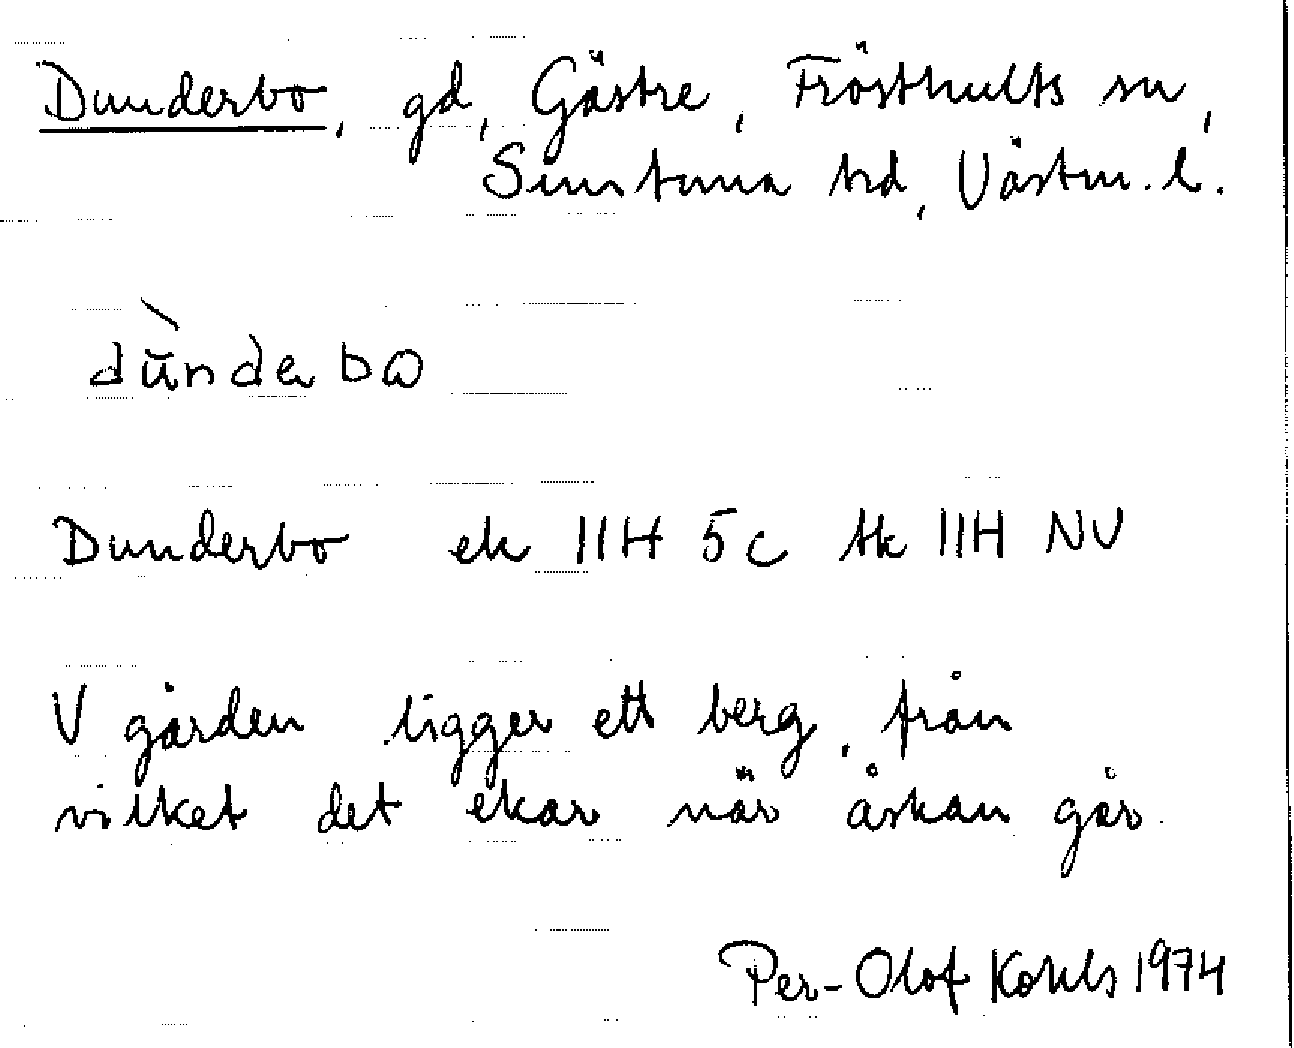 Dunderbo, gd, Gästre, Frösthults sn,
Simtuna hd, Västm. l.
dùndebω
Dunderbo ek 11H 5c tk 11H NV
V gården ligger ett berg, från
vilket det ekar när åskan går.
Per-Olof Kohls 1974